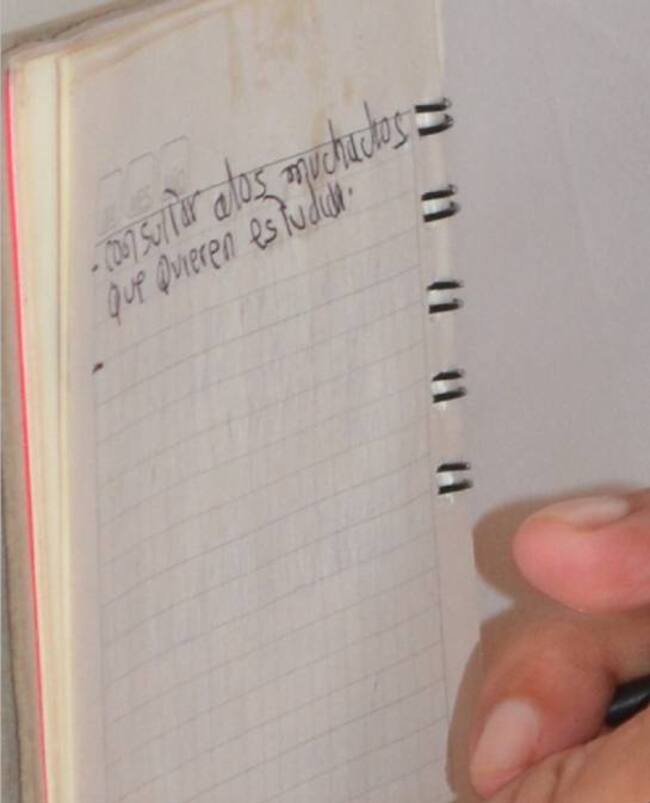 - consultar alos muchachos
que quieren estudiar.
-